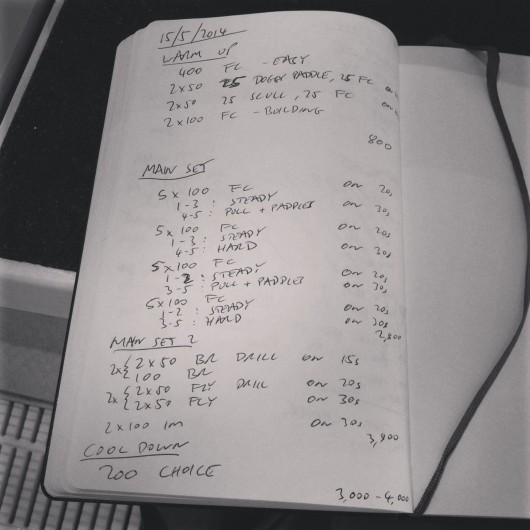 15/5/2014
WARM UP
400 FC - EASY
2x50 25 DOGGY PADDLE, 25 FC on
2x50 25 SCULL, 25 FC on
2x100 FC - BUILDING
800
MAIN SET
5x100 FC on 20s
1-3: STEADY
4-5: PULL + PADDLES on 30s
5x100 FC on 20s
1-3: STEADY
4-5: HARD on 30s
5x100 FC
1-2: STEADY on 20s
3-5: PULL + PADDLES on 30s
5x100 FC
1-2: STEADY on 20s
3-5: HARD on 30s
2,800
MAIN SET 2
2x { 2x50 BR DRILL on 15s
100 BR
2x { 2x50 FLY DRILL on 20s
2x50 FLY on 30s
2x100 IM on 30s
3,800
COOL DOWN
200 CHOICE
3,000 - 4,000